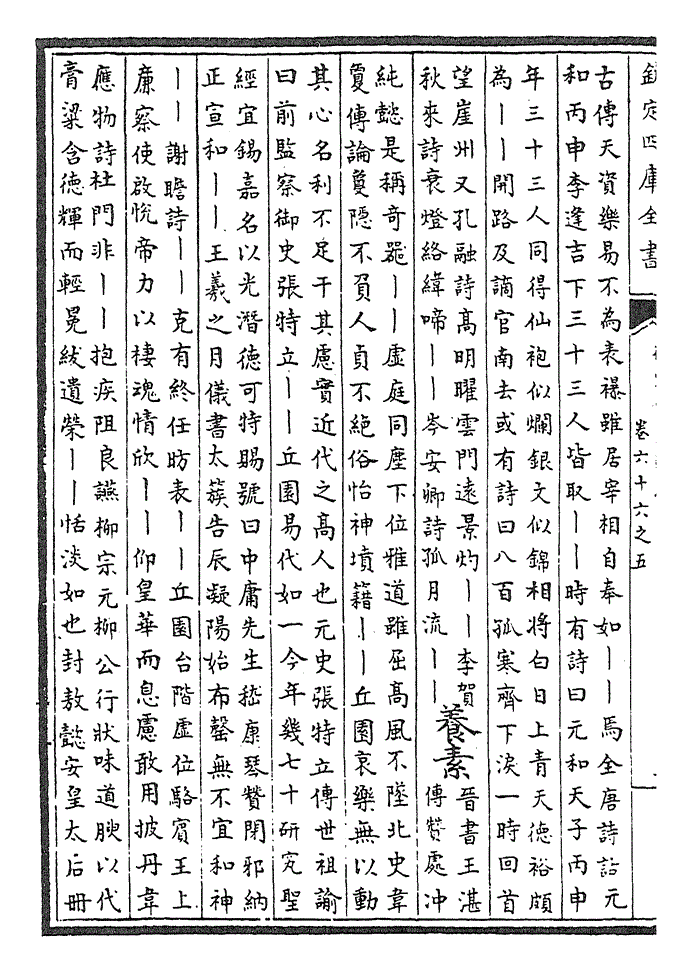 欽定四庫全書
卷六十六之五
古傳天資樂易不為表襮雖居宰相自奉如——焉全唐詩話元
和丙申李逢吉下三十三人皆取——時有詩曰元和天子丙申
年三十三人同得仙袍似爛銀文似錦相將白日上青天德裕頗
為——開路及謫官南去或有詩曰八百孤寒齊下淚一時回首
望崖州又孔融詩高明曜雲門遠景灼——李賀
秋來詩衰燈絡緯啼——岑安卿詩孤月流——
養素
晉書王湛
傳贊處冲
純懿是稱奇器——虛庭同塵下位雅道雖屈高風不墜北史韋
敻傳論敻隱不負人貞不絕俗怡神墳籍——丘園哀樂無以動
其心名利不足干其慮實近代之高人也元史張特立傳世祖諭
曰前監察御史張特立——丘園易代如一今年幾七十研究聖
經宜錫嘉名以光潛德可特賜號曰中庸先生嵇康琴贊閑邪納
正宣和——王羲之月儀書太簇告辰凝陽始布罄無不宜和神
——謝瞻詩——克有終任昉表——丘園台階虛位駱賓王上
廉察使啟悅帝力以棲魂情欣——仰皇華而息慮敢用披丹韋
應物詩杜門非——抱疾阻良讌柳宗元柳公行狀味道腴以代
膏粱含德輝而輕冕紱遺榮——恬淡如也封敖懿安皇太后冊